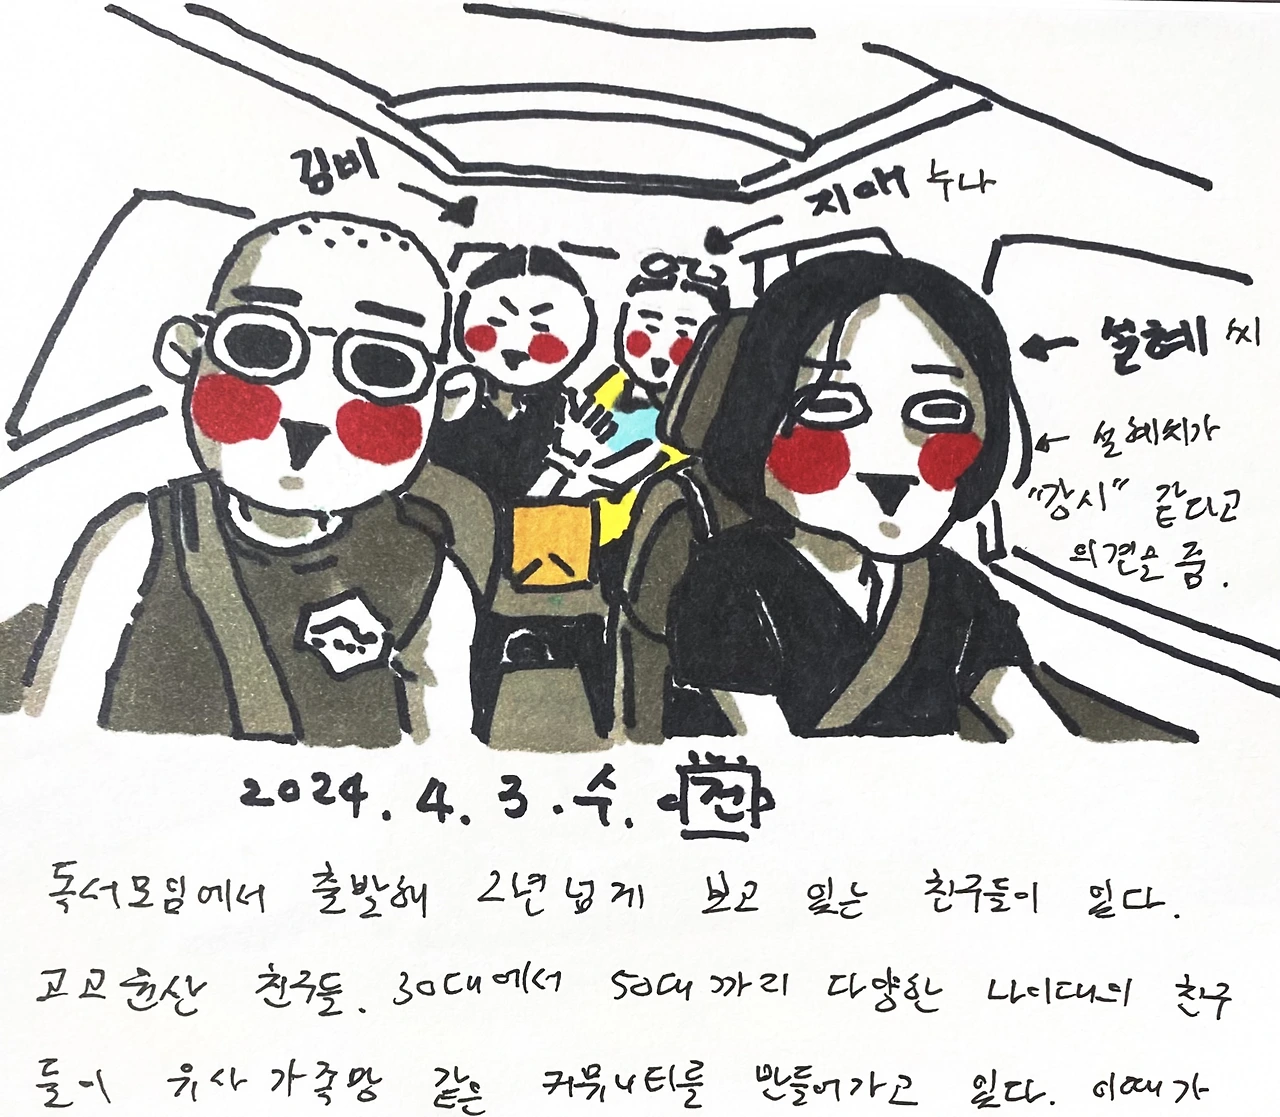 김비
지애 누나
설혜 씨
설혜씨가
"강시" 같다고
의견을 줌.
2024. 4. 3. 수. 전
독서모임에서 출발해 2년 넘게 보고 있는 친구들이 있다.
고고 친구들. 30대에서 50대까지 다양한 나이대의 친구
들이 유사 가족망 같은 커뮤니티를 만들어가고 있다. 이때가